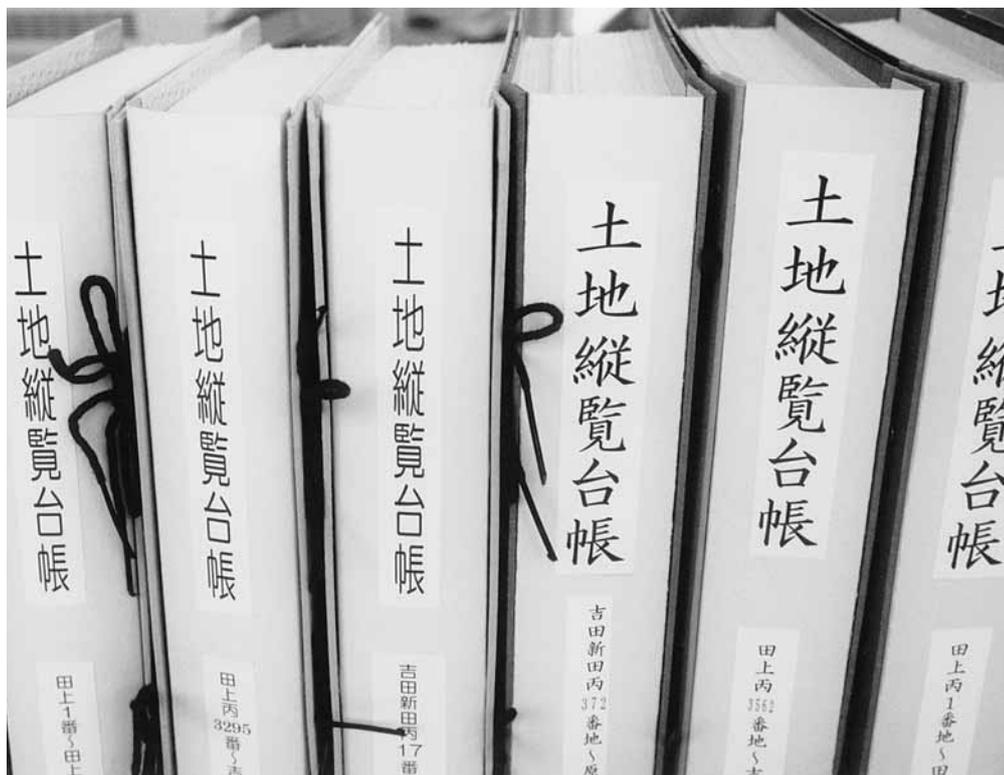 土地縦覧台帳
田上1番〜田上
土地縦覧台帳
田上丙3295番〜吉
土地縦覧台帳
吉田新田丙17番
土地縦覧台帳
吉田新田丙372番地〜原
土地縦覧台帳
田上丙3562番地〜吉
土地縦覧台帳
田上丙1番地〜田